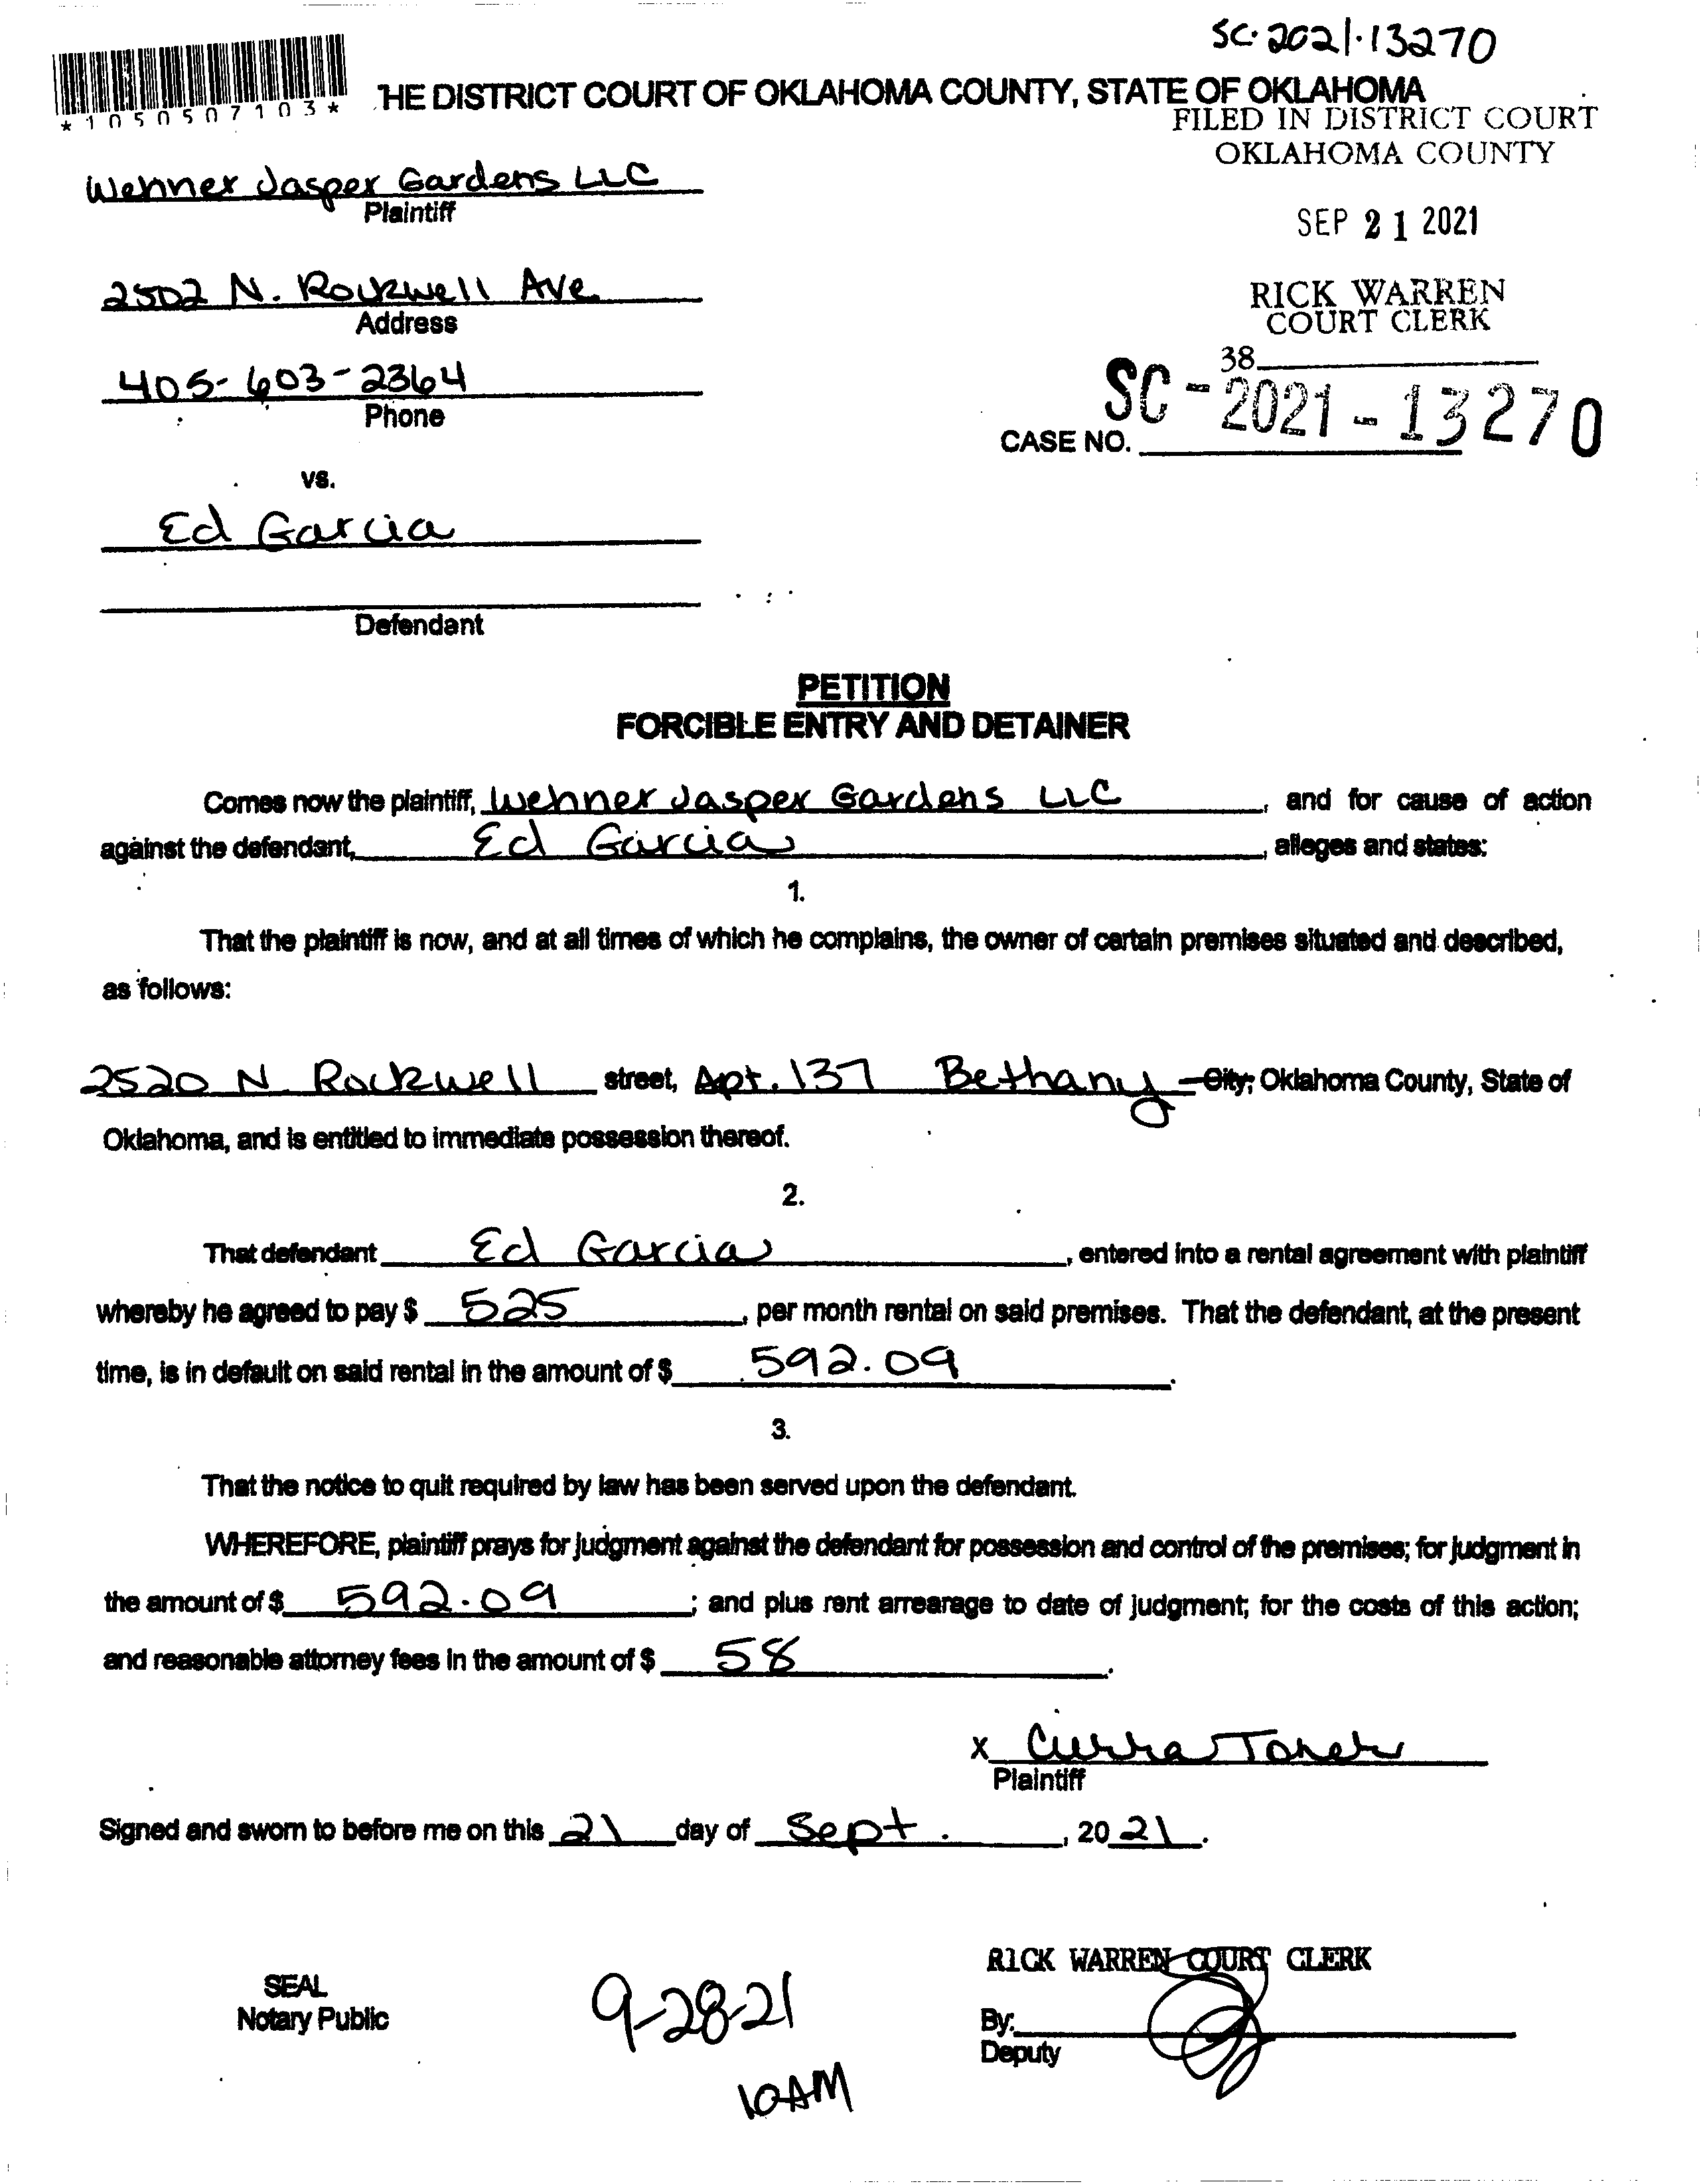 SC-2021-13270
*1050507103*
HE DISTRICT COURT OF OKLAHOMA COUNTY, STATE OF OKLAHOMA
FILED IN DISTRICT COURT
OKLAHOMA COUNTY
Wehner Jasper Gardens LLC
Plaintiff
SEP 21 2021
2502 N. Rockwell Ave.
Address
RICK WARREN
COURT CLERK
405-603-2364
Phone
38
SC-2021-13270
CASE NO.
vs.
Ed Garcia
Defendant
PETITION
FORCIBLE ENTRY AND DETAINER
Comes now the plaintiff, Wehner Jasper Gardens LLC, and for cause of action
against the defendant, Ed Garcia, alleges and states:
1.
That the plaintiff is now, and at all times of which he complains, the owner of certain premises situated and described,
as follows:
2520 N. Rockwell street, Apt. 137 Bethany City, Oklahoma County, State of
Oklahoma, and is entitled to immediate possession thereof.
2.
That defendant Ed Garcia, entered into a rental agreement with plaintiff
whereby he agreed to pay $ 525, per month rental on said premises. That the defendant, at the present
time, is in default on said rental in the amount of $ 592.09.
3.
That the notice to quit required by law has been served upon the defendant.
WHEREFORE, plaintiff prays for judgment against the defendant for possession and control of the premises; for judgment in
the amount of $ 592.09; and plus rent arrearage to date of judgment; for the costs of this action;
and reasonable attorney fees in the amount of $ 58.
x
Plaintiff
Signed and sworn to before me on this 21 day of Sept., 2021.
RICK WARREN COURT CLERK
SEAL
Notary Public
9-28-21
By:
Deputy
10AM